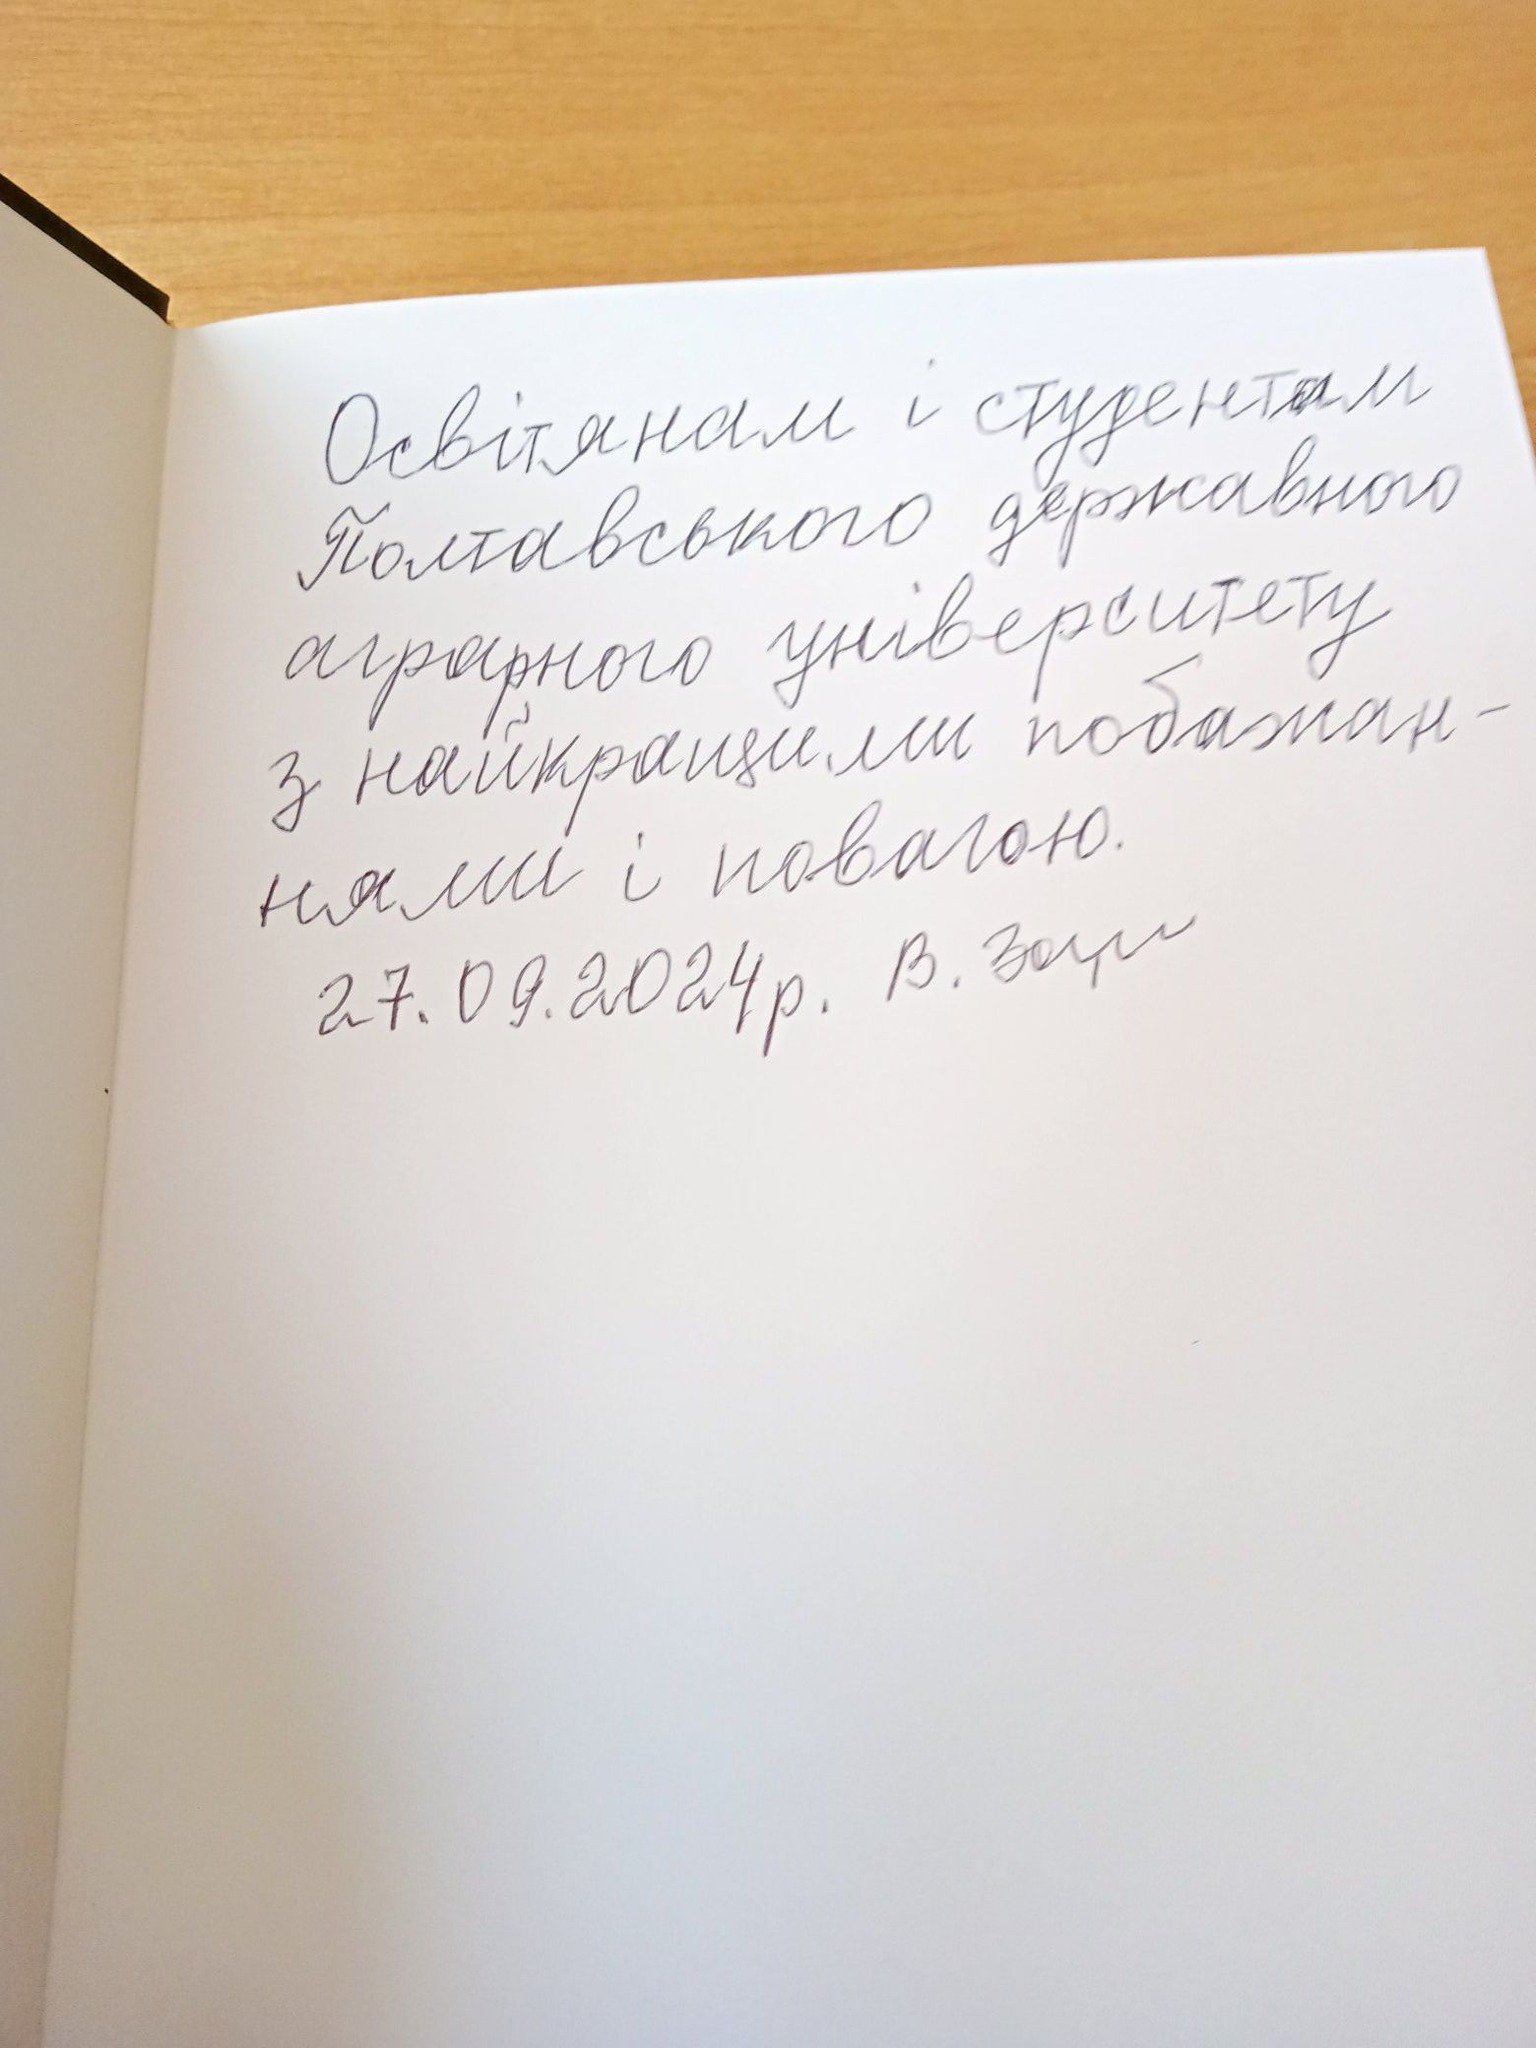 Освітянам і студентам
Полтавського державного
аграрного університету
з найкращими побажан-
нями і повагою.
27.09.2024р. В.